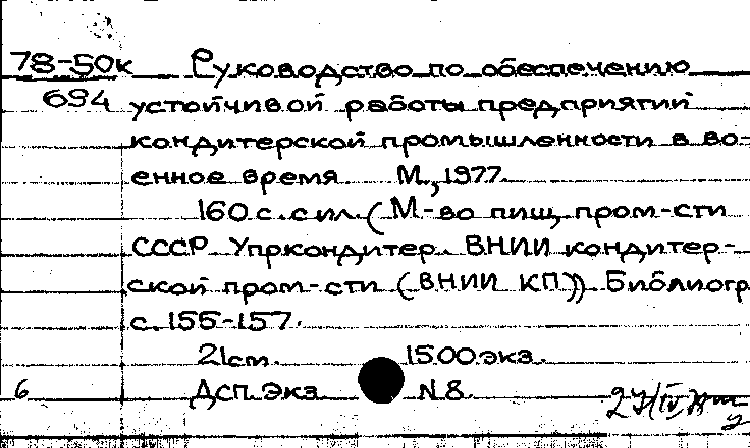 78-50к Руководство по обеспечению
694 устойчивой работы предприятий
кондитерской промышленности в во-
енное время М., 1977.
160 с. с ил. (М-во пищ. пром-сти
СССР Упркондитер. ВНИИ кондитер-
ской пром-сти (ВНИИ КП)) Библиогр
с. 155-157.
21 см. 1500 экз.
6 ДСП. Экз. N 8.